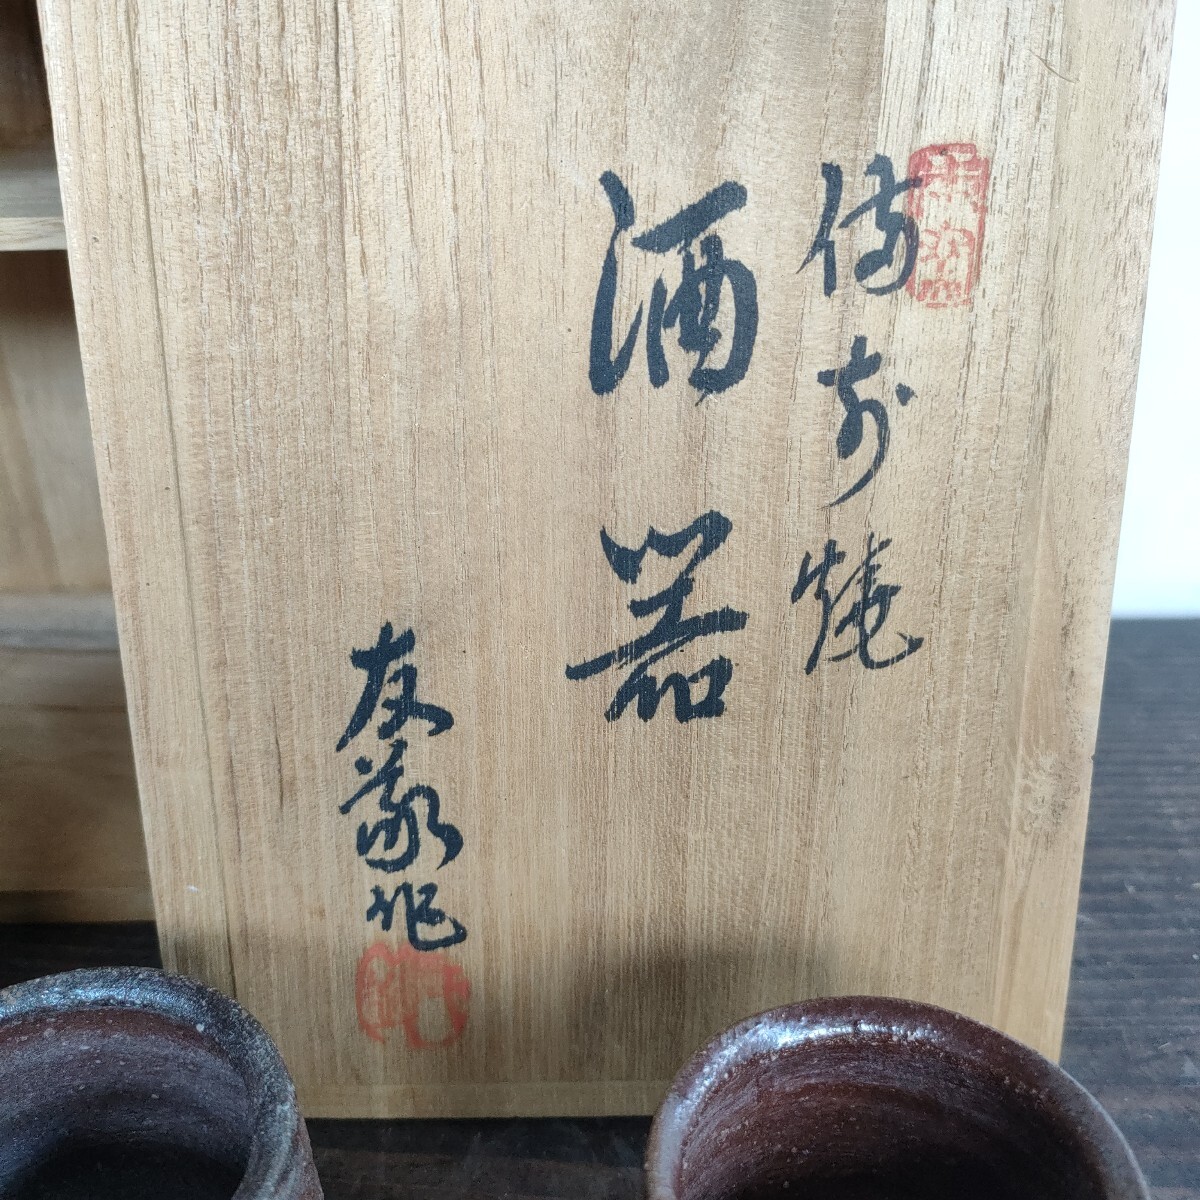 備前焼
酒器
友蒙作